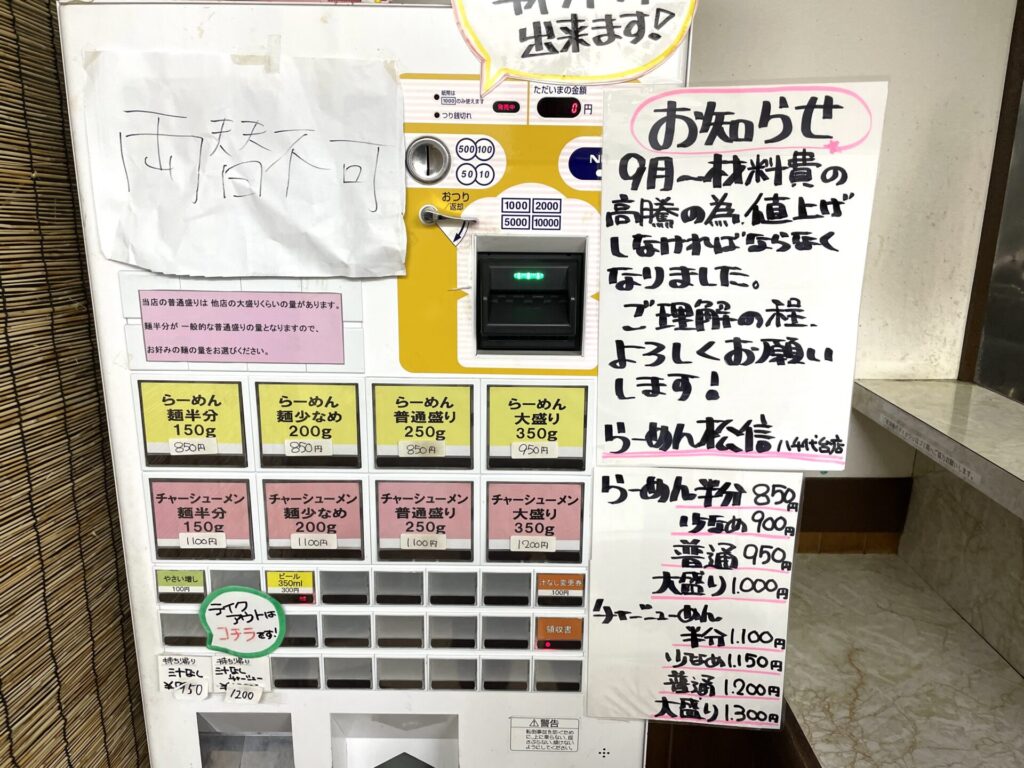 出来ます!
両替不可
紙幣は
1000のみ使えます
つり銭切れ
発売中
ただいまの金額
0円
500 100
50 10
おつり
返却
1000 2000
5000 10000
当店の普通盛りは 他店の大盛りくらいの量があります。
麺半分が 一般的な普通盛りの量となりますので、
お好みの麺の量をお選びください。
お知らせ
9月〜材料費の
高騰の為、値上げ
しなければならなく
なりました。
ご理解の程、
よろしくお願い
します!
らーめん松信 八千代台店
らーめん
麺半分
150g
850円
らーめん
麺少なめ
200g
850円
らーめん
普通盛り
250g
850円
らーめん
大盛り
350g
950円
チャーシューメン
麺半分
150g
1100円
チャーシューメン
麺少なめ
200g
1100円
チャーシューメン
普通盛り
250g
1100円
チャーシューメン
大盛り
350g
1200円
らーめん半分 850円
少なめ 900円
普通 950円
大盛り 1.000円
チャーシューめん
半分 1.100円
少なめ 1.150円
普通 1.200円
大盛り 1.300円
やさい増し
100円
ビール
350ml
300円
汁なし変更券
100円
領収書
テイク
アウトは
コチラです!
持ち帰り
汁なし
950
持ち帰り
汁なし
チャーシュー
1200
警告
転倒事故を防ぐため
に、上に乗らない、揺
さぶらない、傾けない
ようにしてください。